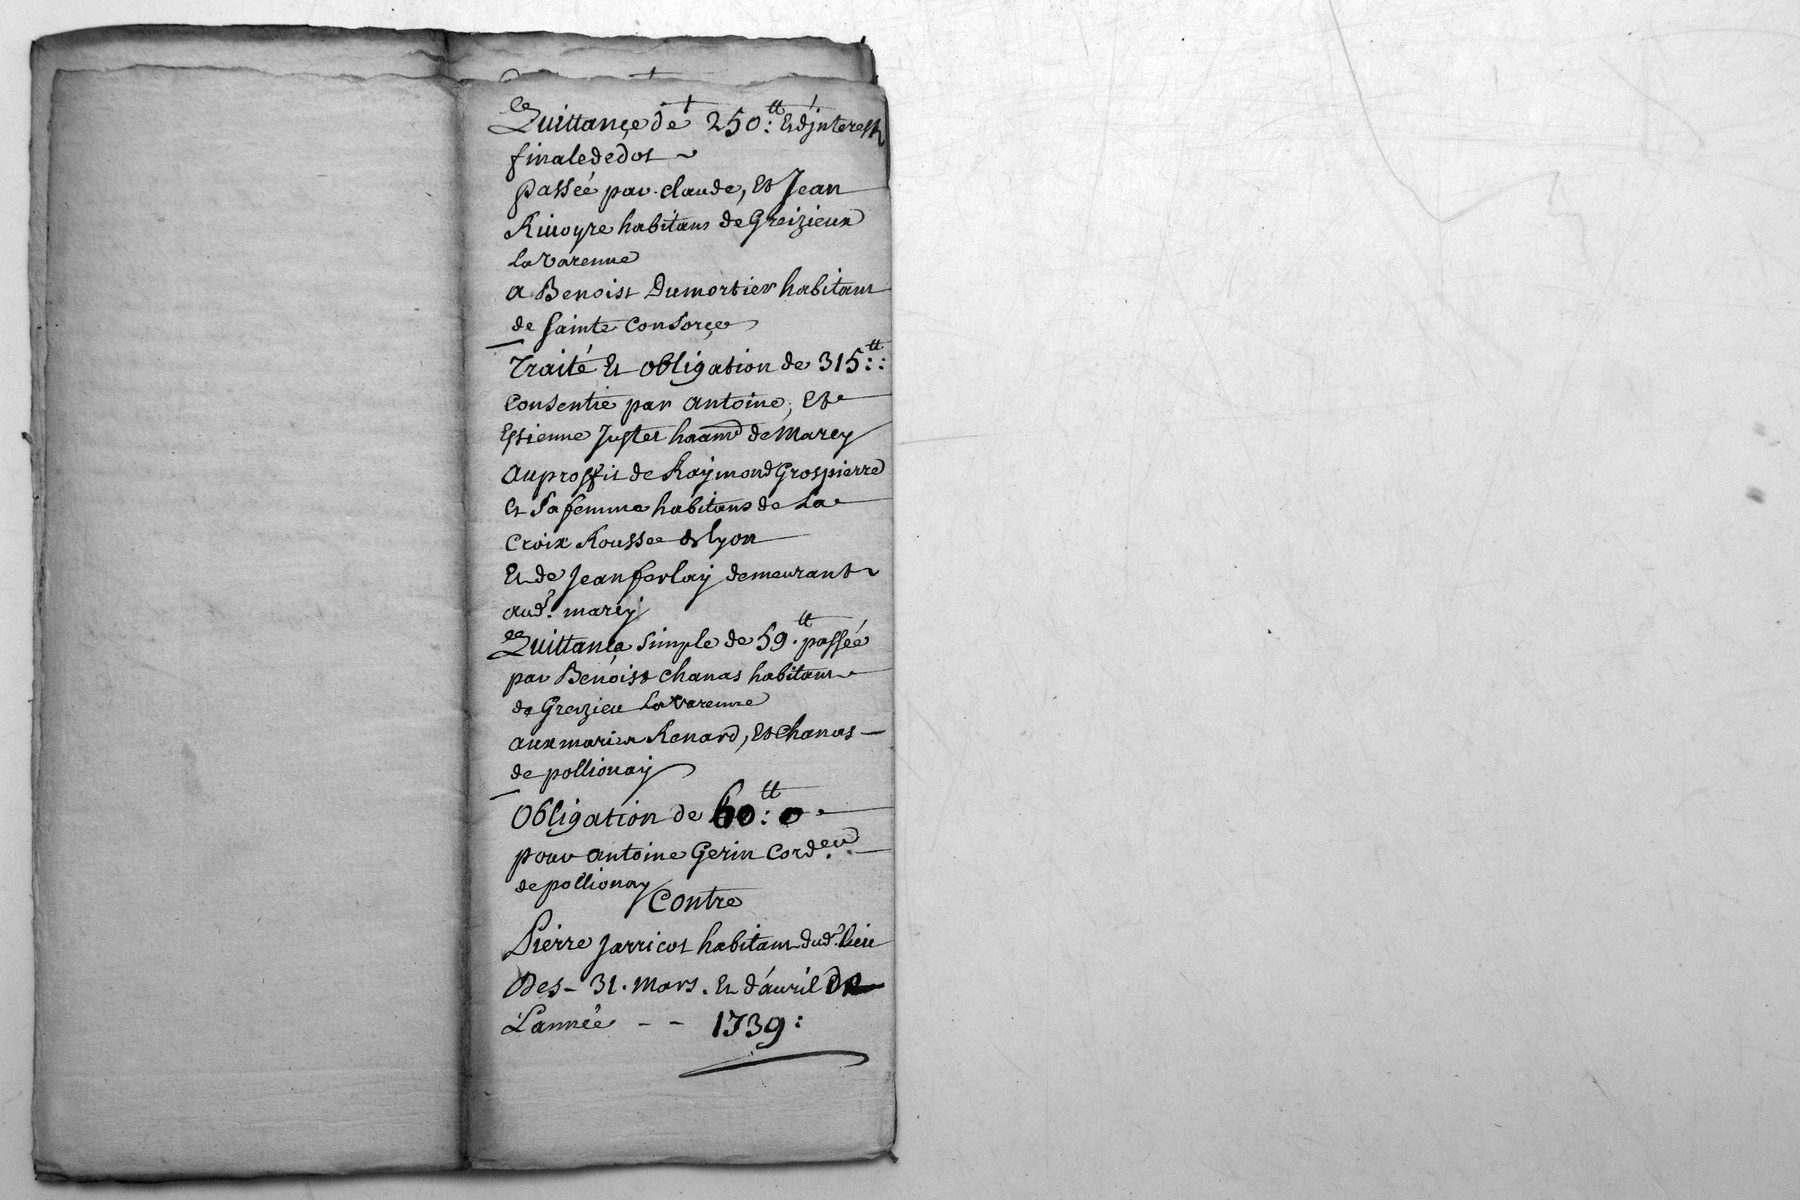 Quittançe de 250:tt Et d'jnterest
finale de dot ~
passée par claude, Et Jean
Riuoyre habitans de Greizieux
La varenne
a Benoist Dumortier habitant
de sainte Consorçe
Traité Et obligation de 315:tt:
Consentie par antoine, Et
Estienne Juster de Marcy
au proffit de Raymond Grospierre
Et sa femme habitans de La
Croix Rousse de lyon
Et de Jean ferlay demeurant
aud.t marcy
Quittança simple de 59.tt passée
par Benoist chanas habitant
de Greizieu La varenne
aux maries Renard, Et chanas
de pollionay
Obligation de 60:tt 0
pour antoine Gerin Cord.eur
de pollionay
Contre
Pierre Jarricot habitant dud.t lieu
Des 31. mars. Et d'auril De
L'année - - 1739: